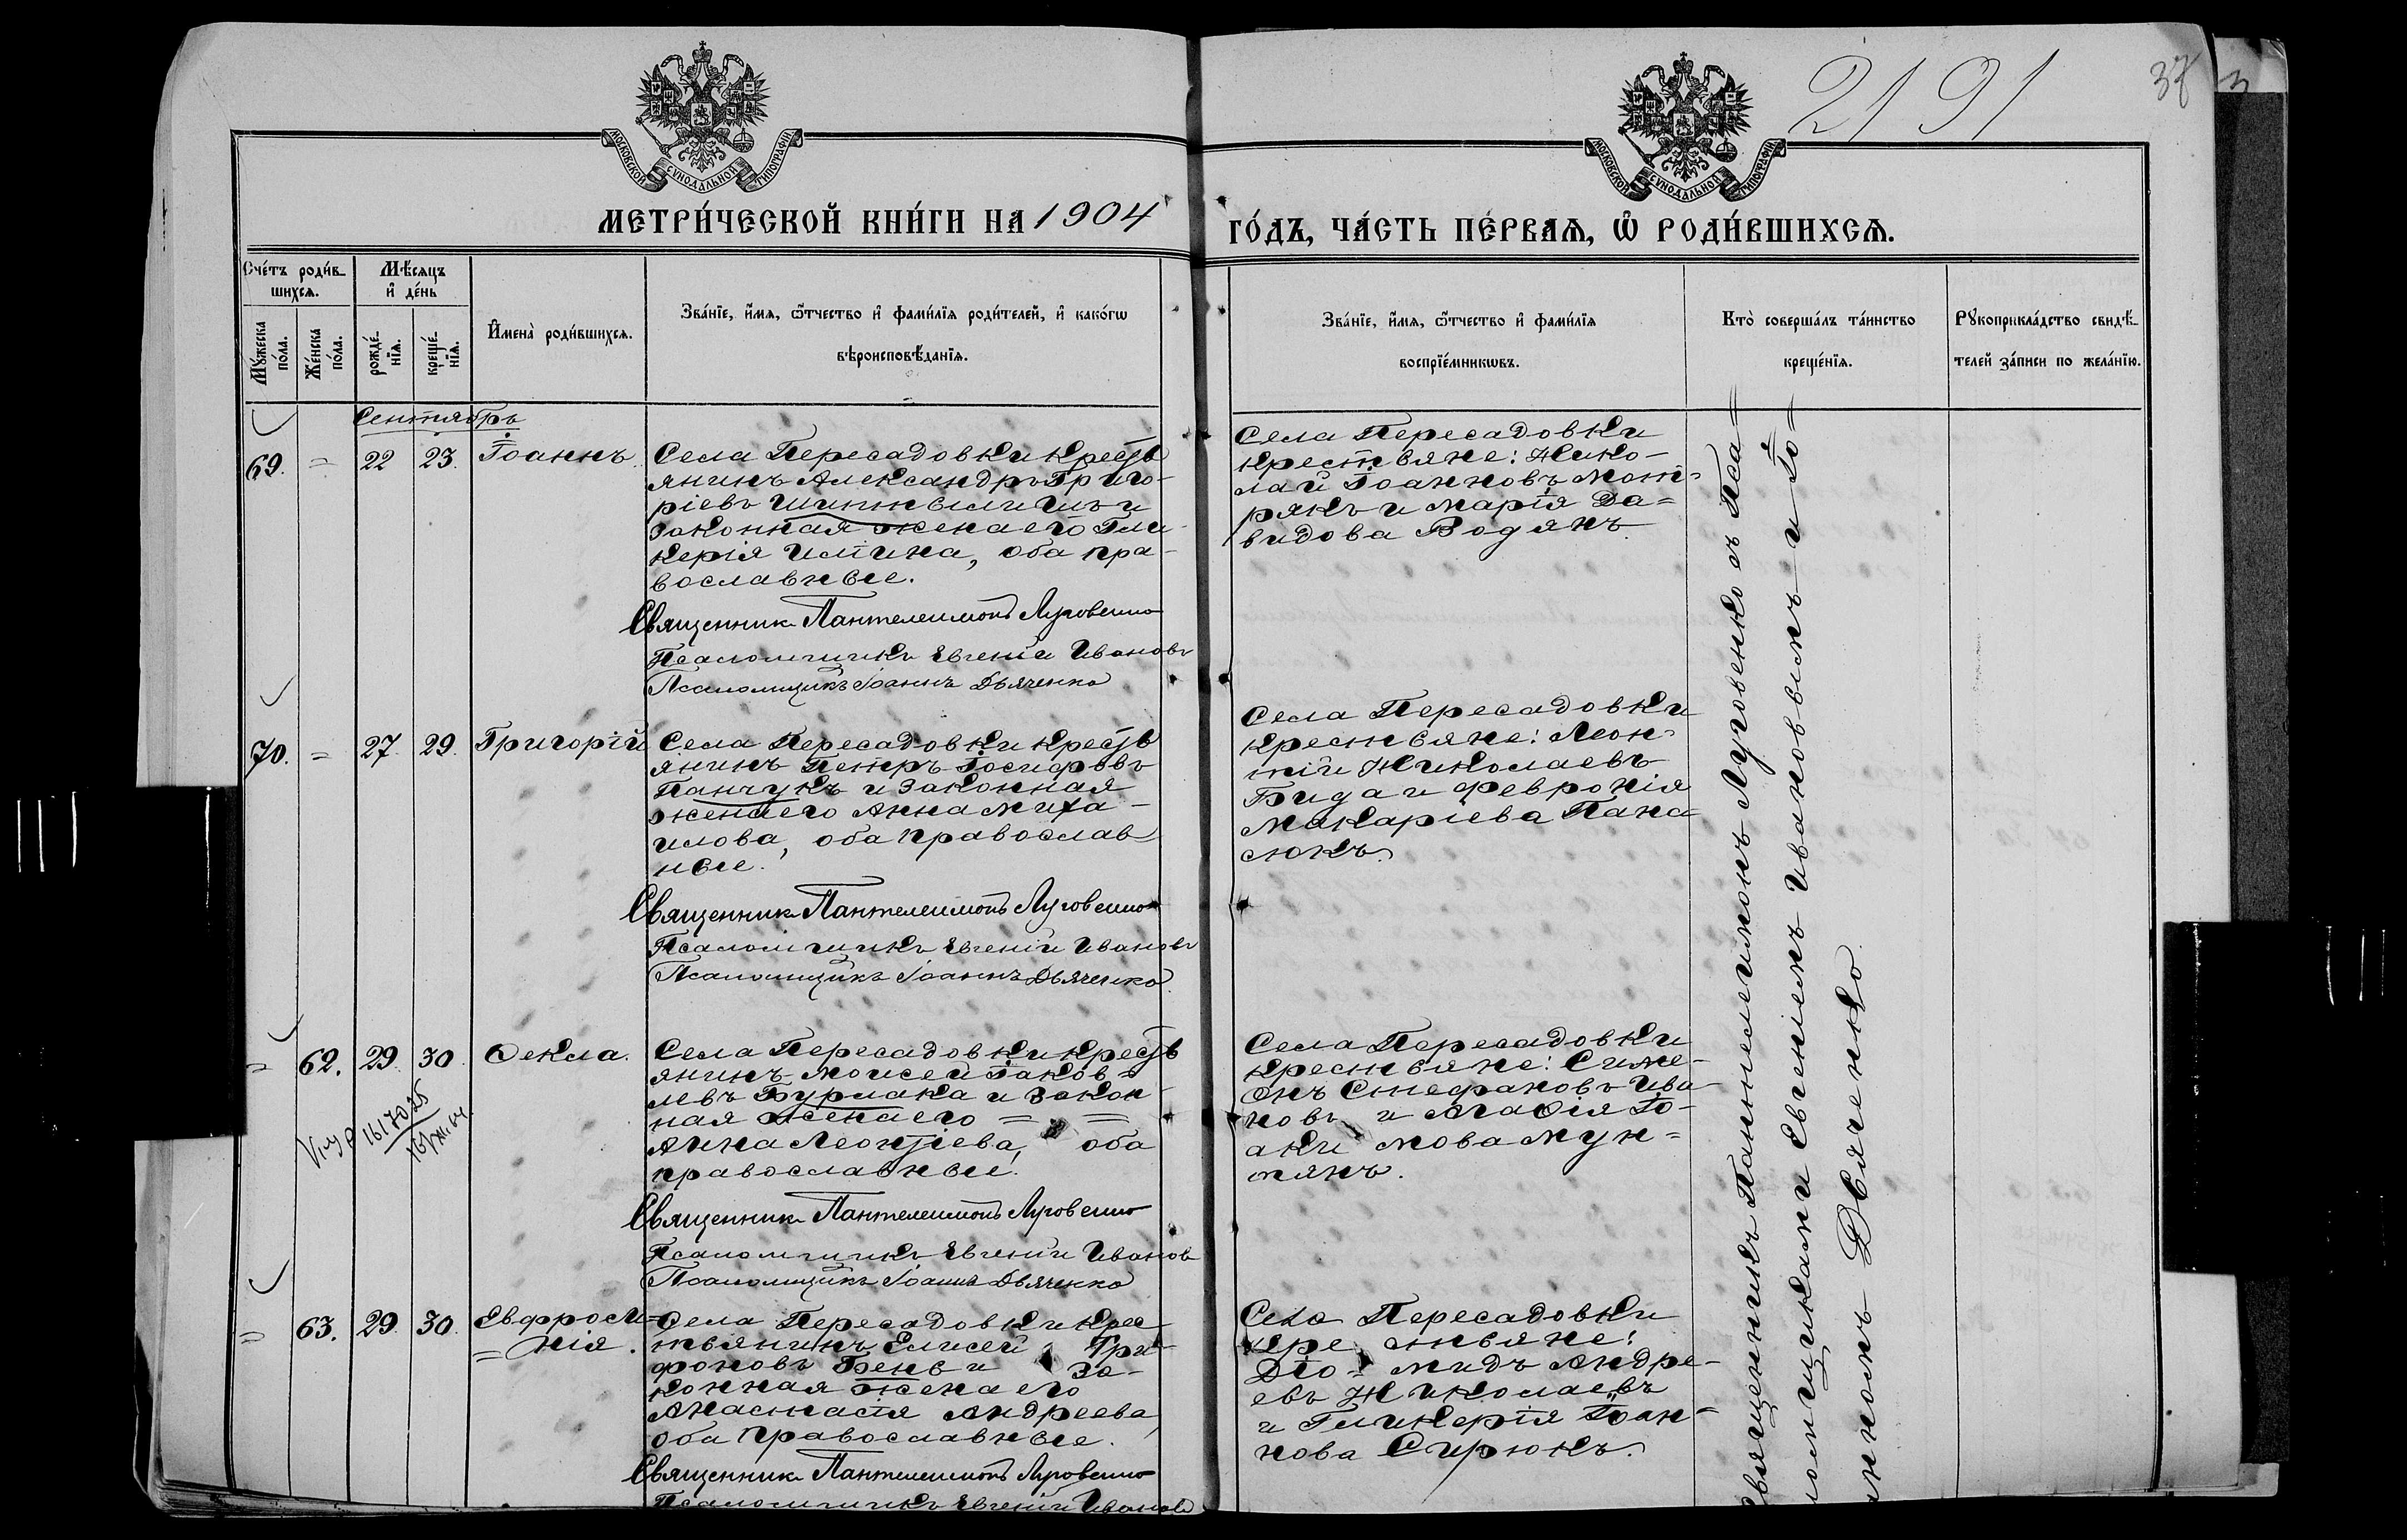 2191
37
МОСКОВСКОЙ СУНОДАЛЬНОЙ ТИПОГРАФІИ
МОСКОВСКОЙ СУНОДАЛЬНОЙ ТИПОГРАФІИ
МЕТРИ́ЧЕСКОЙ КНИ́ГИ НА 1904
ГО́ДЪ, ЧА́СТЬ ПЕ́РВАѦ, Ѡ҆ РОДИ́ВШИХСѦ.
Сче́тъ роди́в-
шихсѧ.
Мꙋ́жеска по́ла.
Же́нска по́ла.
Мѣ́сяцъ
и҆ де́нь
рожде́-
нїѧ.
креще́-
нїѧ.
И҆мена̀ роди́вшихсѧ.
Зва́нїе, и҆́мѧ, ѻ҆́тчество и҆ фами́лїѧ роди́телей, и҆ како́гѡ
вѣроисповѣ́данїѧ.
Зва́нїе, и҆́мѧ, ѻ҆́тчество и҆ фами́лїѧ
воспрїе́мникѡвъ.
Кто̀ соверша́лъ та́инство
креще́нїѧ.
Рꙋкоприкла́дство свидѣ́-
телей за́писи по жела́нїю.
Сентябрь
69. = 22 23. Іоаннъ.
Села Пересадовки кресть
янинъ Александръ Григо-
ріевъ
законная жена его Гли-
керія оба пра-
вославные.
Священник Пантелеимонъ Луговенко
Псаломщикъ Евгеній Ивановъ
Псаломщикъ Іоаннъ Дьяченко
Села Пересадовки
крестьяне: Нико-
лай Іоанновъ Мот-
рякъ и Марія Да=
видова Водянъ.
70. = 27. 29. Григорій
Села Пересадовки кресть
янинъ Петръ Іосифовъ
Панчукъ и законная
жена его Анна Миха-
илова, оба православ
ные.
Священник Пантелеимонъ Луговенко
Псаломщикъ Евгеній Ивановъ
Псаломщикъ Іоаннъ Дьяченко
Села Пересадовки
крестьяне: Леон-
тій Николаевъ
Бида и Февронія
Макаріева Пана-
сюкъ.
= 62. 29. 30. Ѳекла.
Села Пересадовки кресть
янинъ Моисей Іаков=
левъ Бурлака и закон-
ная жена его = =
Анна Леонтіева, оба
православные.
Священник Пантелеимонъ Луговенко
Псаломщикъ Евгеній Ивановъ
Псаломщикъ Іоаннъ Дьяченко
Села Пересадовки
крестьяне: Симе-
онъ Стефановъ Ива-
новъ и Агаѳія Іо-
акимова Мун=
тянъ.
= 63. 29. 30. Евфроси-
= нія.
Села Пересадовки крес
тьянинъ Елисей Три-
фоновъ Бень и за-
конная жена его
Анастасія Андреева,
оба православные.
Священник Пантелеимонъ Луговенко
Псаломщикъ Евгеній Ивановъ
Села Пересадовки
крестьяне:
Діо-мидъ Андре-
евъ Николаевъ
и Гликерія Іоан-
нова Сирюкъ.
Священникъ Пантелеимонъ Луговенко съ Пса=
ломщиками Евгеніемъ Ивановымъ и Іо=
анномъ Дьяченко.